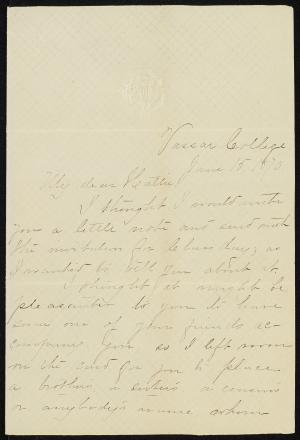 Vassar College
June 15, 1870
My dear Hattie
I thought I would write
you a little note and send with
the invitation for Class day, as
I wanted to tell you about it.
I thought it might be
pleasanter to you to have
some one of your friends ac-
company you so I left room
on the card for you to place
a brother's, a sister's a cousin's
or anybody's name whom